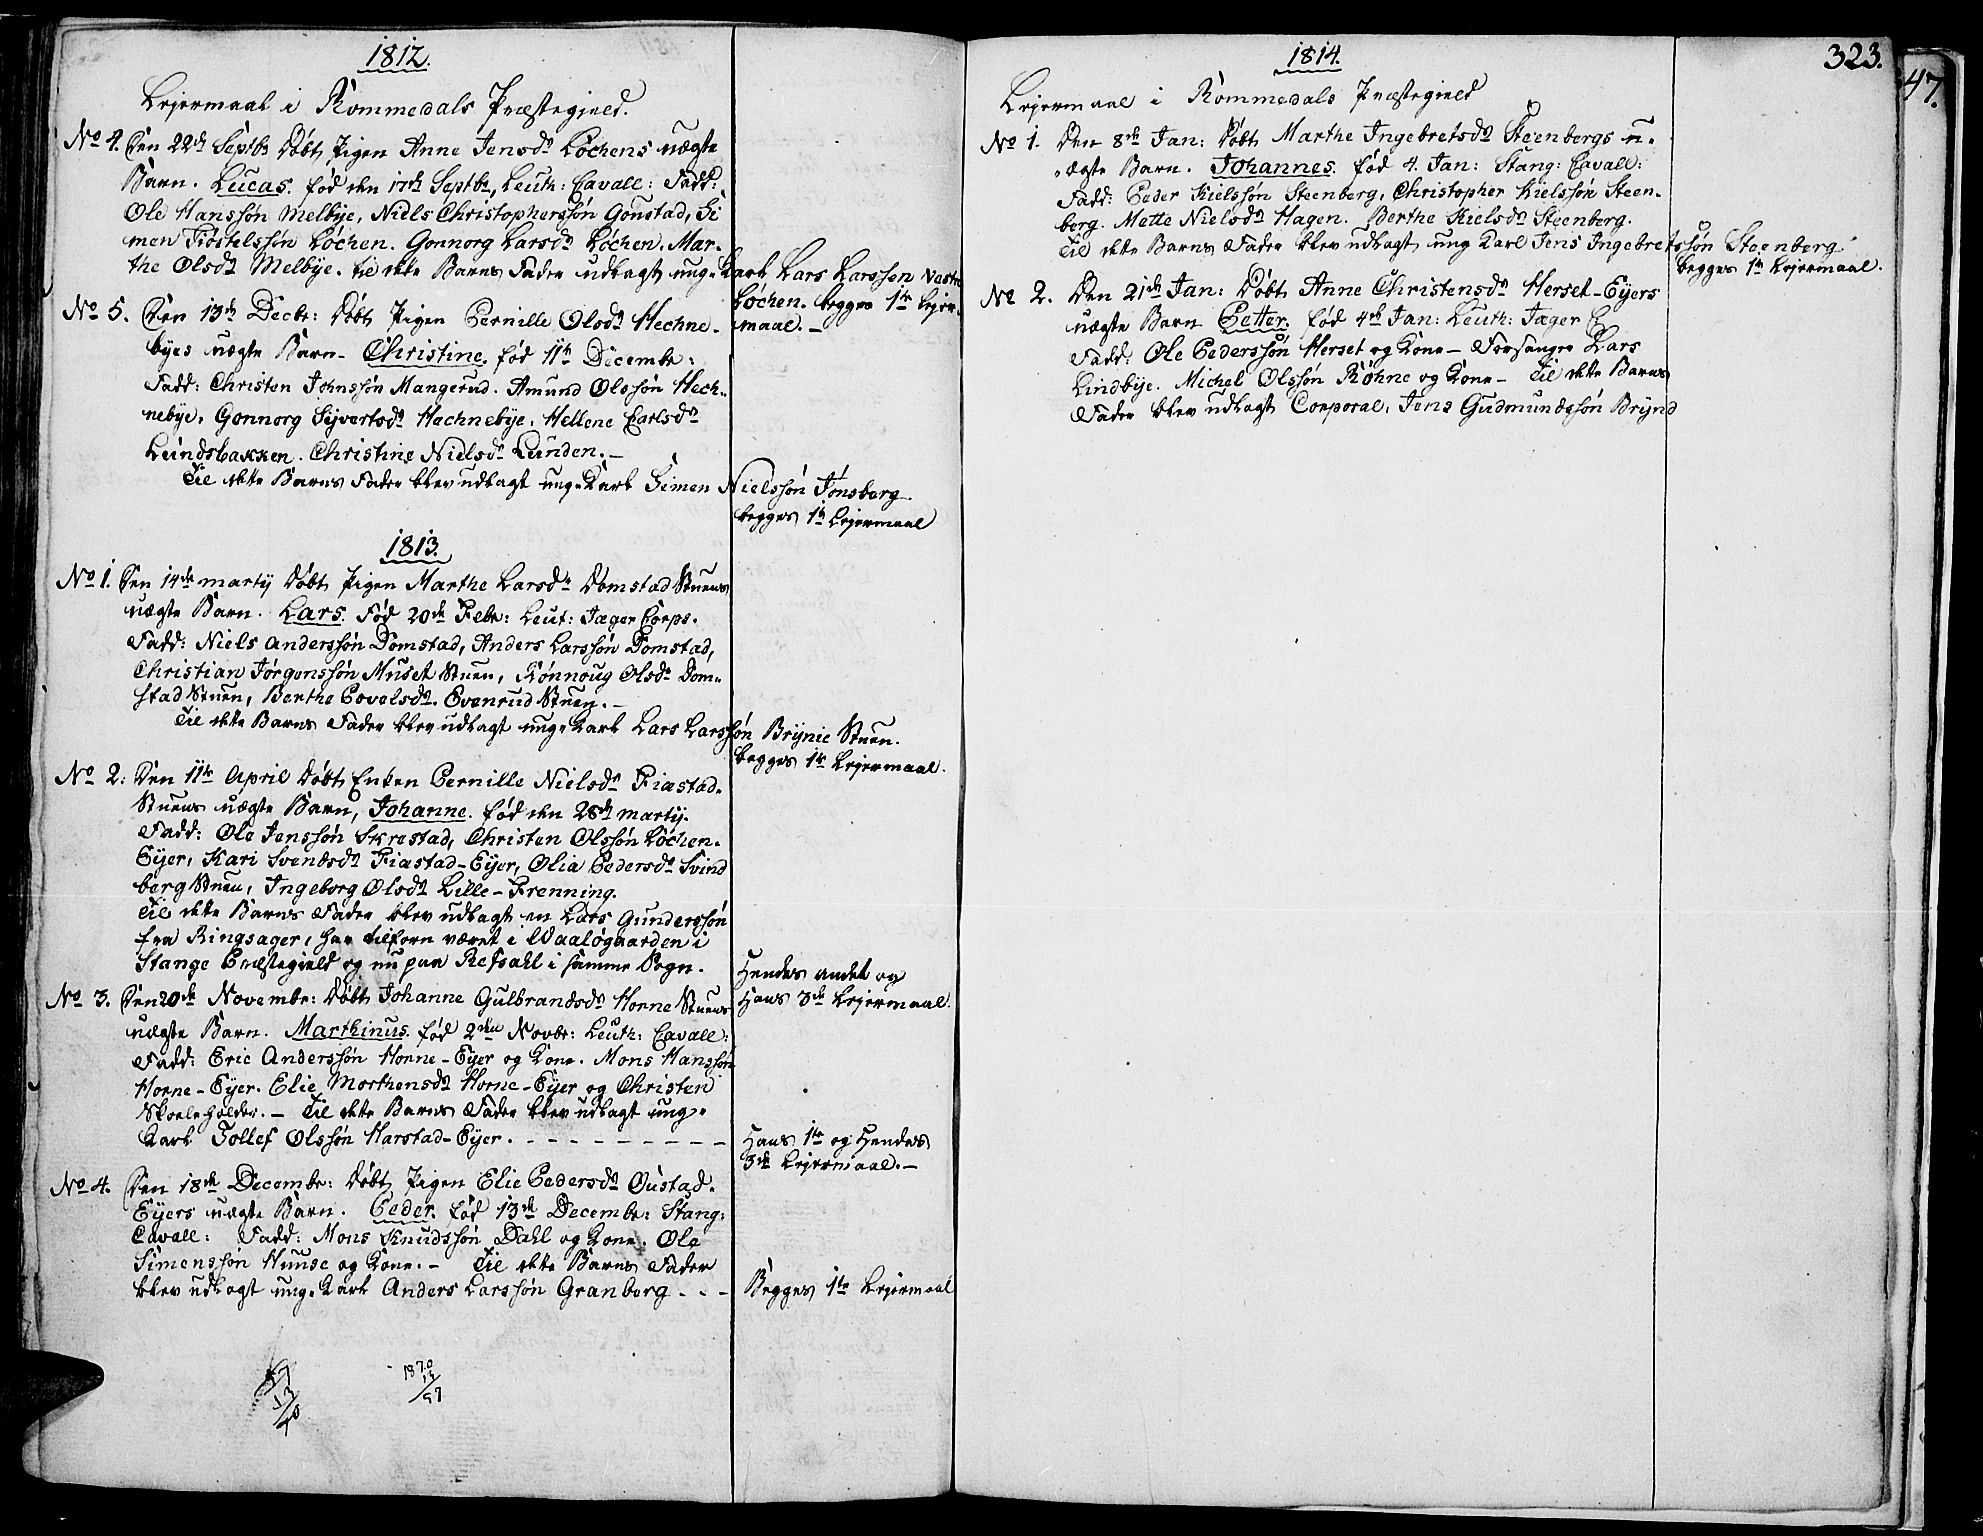 1812.
Lejermaal i Rommedals Præstegield.
No 4. Den 22de Septbr Døbt Pigen Anne Jensdr Løchens uægte
Barn. Lucas. fød den 17de Septbr, Leuth: Cavall: Fadd:
Ole Hanssøn Melbÿe, Niels Christopherssøn Gonstad, Si
men Kiøstelssøn Løchen. Gonnorg Larsdr Løchen. Mar-
the Olsdr Melbÿe. til dette Barns Fader udlagt unge Karl Lars Larssøn Vestre
Løchen. begges 1te Lejer-
maal. -
No 5. Den 13de Decbr: Døbt Pigen Pernille Olsdr Hechne-
byes uægte Barn - Christine. fød 11te Decembr:
Fadd: Christen Johnssøn Mangerud. Amund Olssøn Hech-
nebÿe, Gonnorg Sÿvertsdr Hechnebÿe, Hellene Carlsdr
Lundsbakken. Christine Nielsdr Lunden. -
Til dette Barns Fader blev udlagt unge Karl Simen Nielssøn Jønsberg.
begges 1te Lejermaal
1813.
No 1. Den 14de martij Døbt Pigen Marthe Larsdr Domstad Stuens
uægte Barn. Lars. Fød 20de Febr: Leut: Jæger Corps.
Fadd: Niels Anderssøn Domstad, Anders Larssøn Domstad,
Christian Jørgenssøn Muset Stuen, Rønnoug Olsdr Dom-
stad Stuen, Berthe Povelsdr Evenrud Stuen. -
Til dette Barns Fader blev udlagt unge Karl Lars Larssøn Brÿnie Stuen.
begges 1te Lejermaal.
No 2: Den 11te April Døbt Enken Pernille Nielsdr Fiæstad-
Stuens uægte Barn, Johanne. fød den 28de martij.
Fadd: Ole Jenssøn Skrestad, Christen Olssøn Løchen-
Eÿer, Kari Svendsdr Fiæstad-Eÿer, Olia Pedersdr Svind
berg Stuen, Ingeborg Olsdr Lille-Frenning.
Til dette Barns Fader blev udlagt en Lars Gunderssøn
fra Ringsager, har tilforn været i Waaløgaarden i
Stange Præstegield og nu paa Refsahl i samme Sogn.
Hendes andet og
Hans 3de Lejermaal.
No 3. Den 20de Novembr: Døbt Johanne Gulbrandsdr Horne Stuens
uægte Barn. Marthinus. fød 2den Novbr: Leuth: Cavall:
Fadd: Eric Anderssøn Horne-Eÿer og Kone. Mons Hanssøn
Horne-Eÿer. Elie Morthensdr Horne-Eÿer og Christen
Skoeleholder. - Til dette Barns Fader blev udlagt unge
Karl Tollef Olssøn Harstad-Eÿer. - - - - - - - - -
Hans 1te og Hendes
3de Lejermaal. -
No 4. Den 18de Decembr: Døbt Pigen Elie Pedersdr Oustad-
Eÿers uægte Barn. Peder. fød 13de Decembr: Stang:
Cavall: Fadd: Mons Knudssøn Dahl og Kone. Ole
Simenssøn Huuse og Kone. - Til dette Barns Fader
blev udlagt unge Karl Anders Larssøn Granberg - - -
Begges 1te Lejermaal
1870
13
57
1814.
323.
47.
Lejermaal i Rommedals Præstegield
No 1. Den 8de Jan: Døbt Marthe Ingebretsdr Steenbergs u-
ægte Barn. Johannes. fød 4. Jan: Stang: Cavall:
Fadd: Peder Kielssøn Steenberg, Christopher Kielssøn Steen-
berg. Mette Nielsdr Hagen. Berthe Kielsdr Steenberg.
Til dette Barns Fader blev udlagt ung Karl Jens Ingebretssøn Steenberg
begges 1te Lejermaal.
No 2. Den 21de Jan: Døbt Anne Christensdr Herset-Eÿers
uægte Barn Petter. fød 4de Jan: Leuth: Jæger C
Fadd: Ole Pederssøn Herset og Kone - Forsanger Lars
Lindbÿe. Michel Olssøn Røhne og Kone - Til dette Barns
Fader blev udlagt Corporal, Jens Gudmundssøn Brÿnd